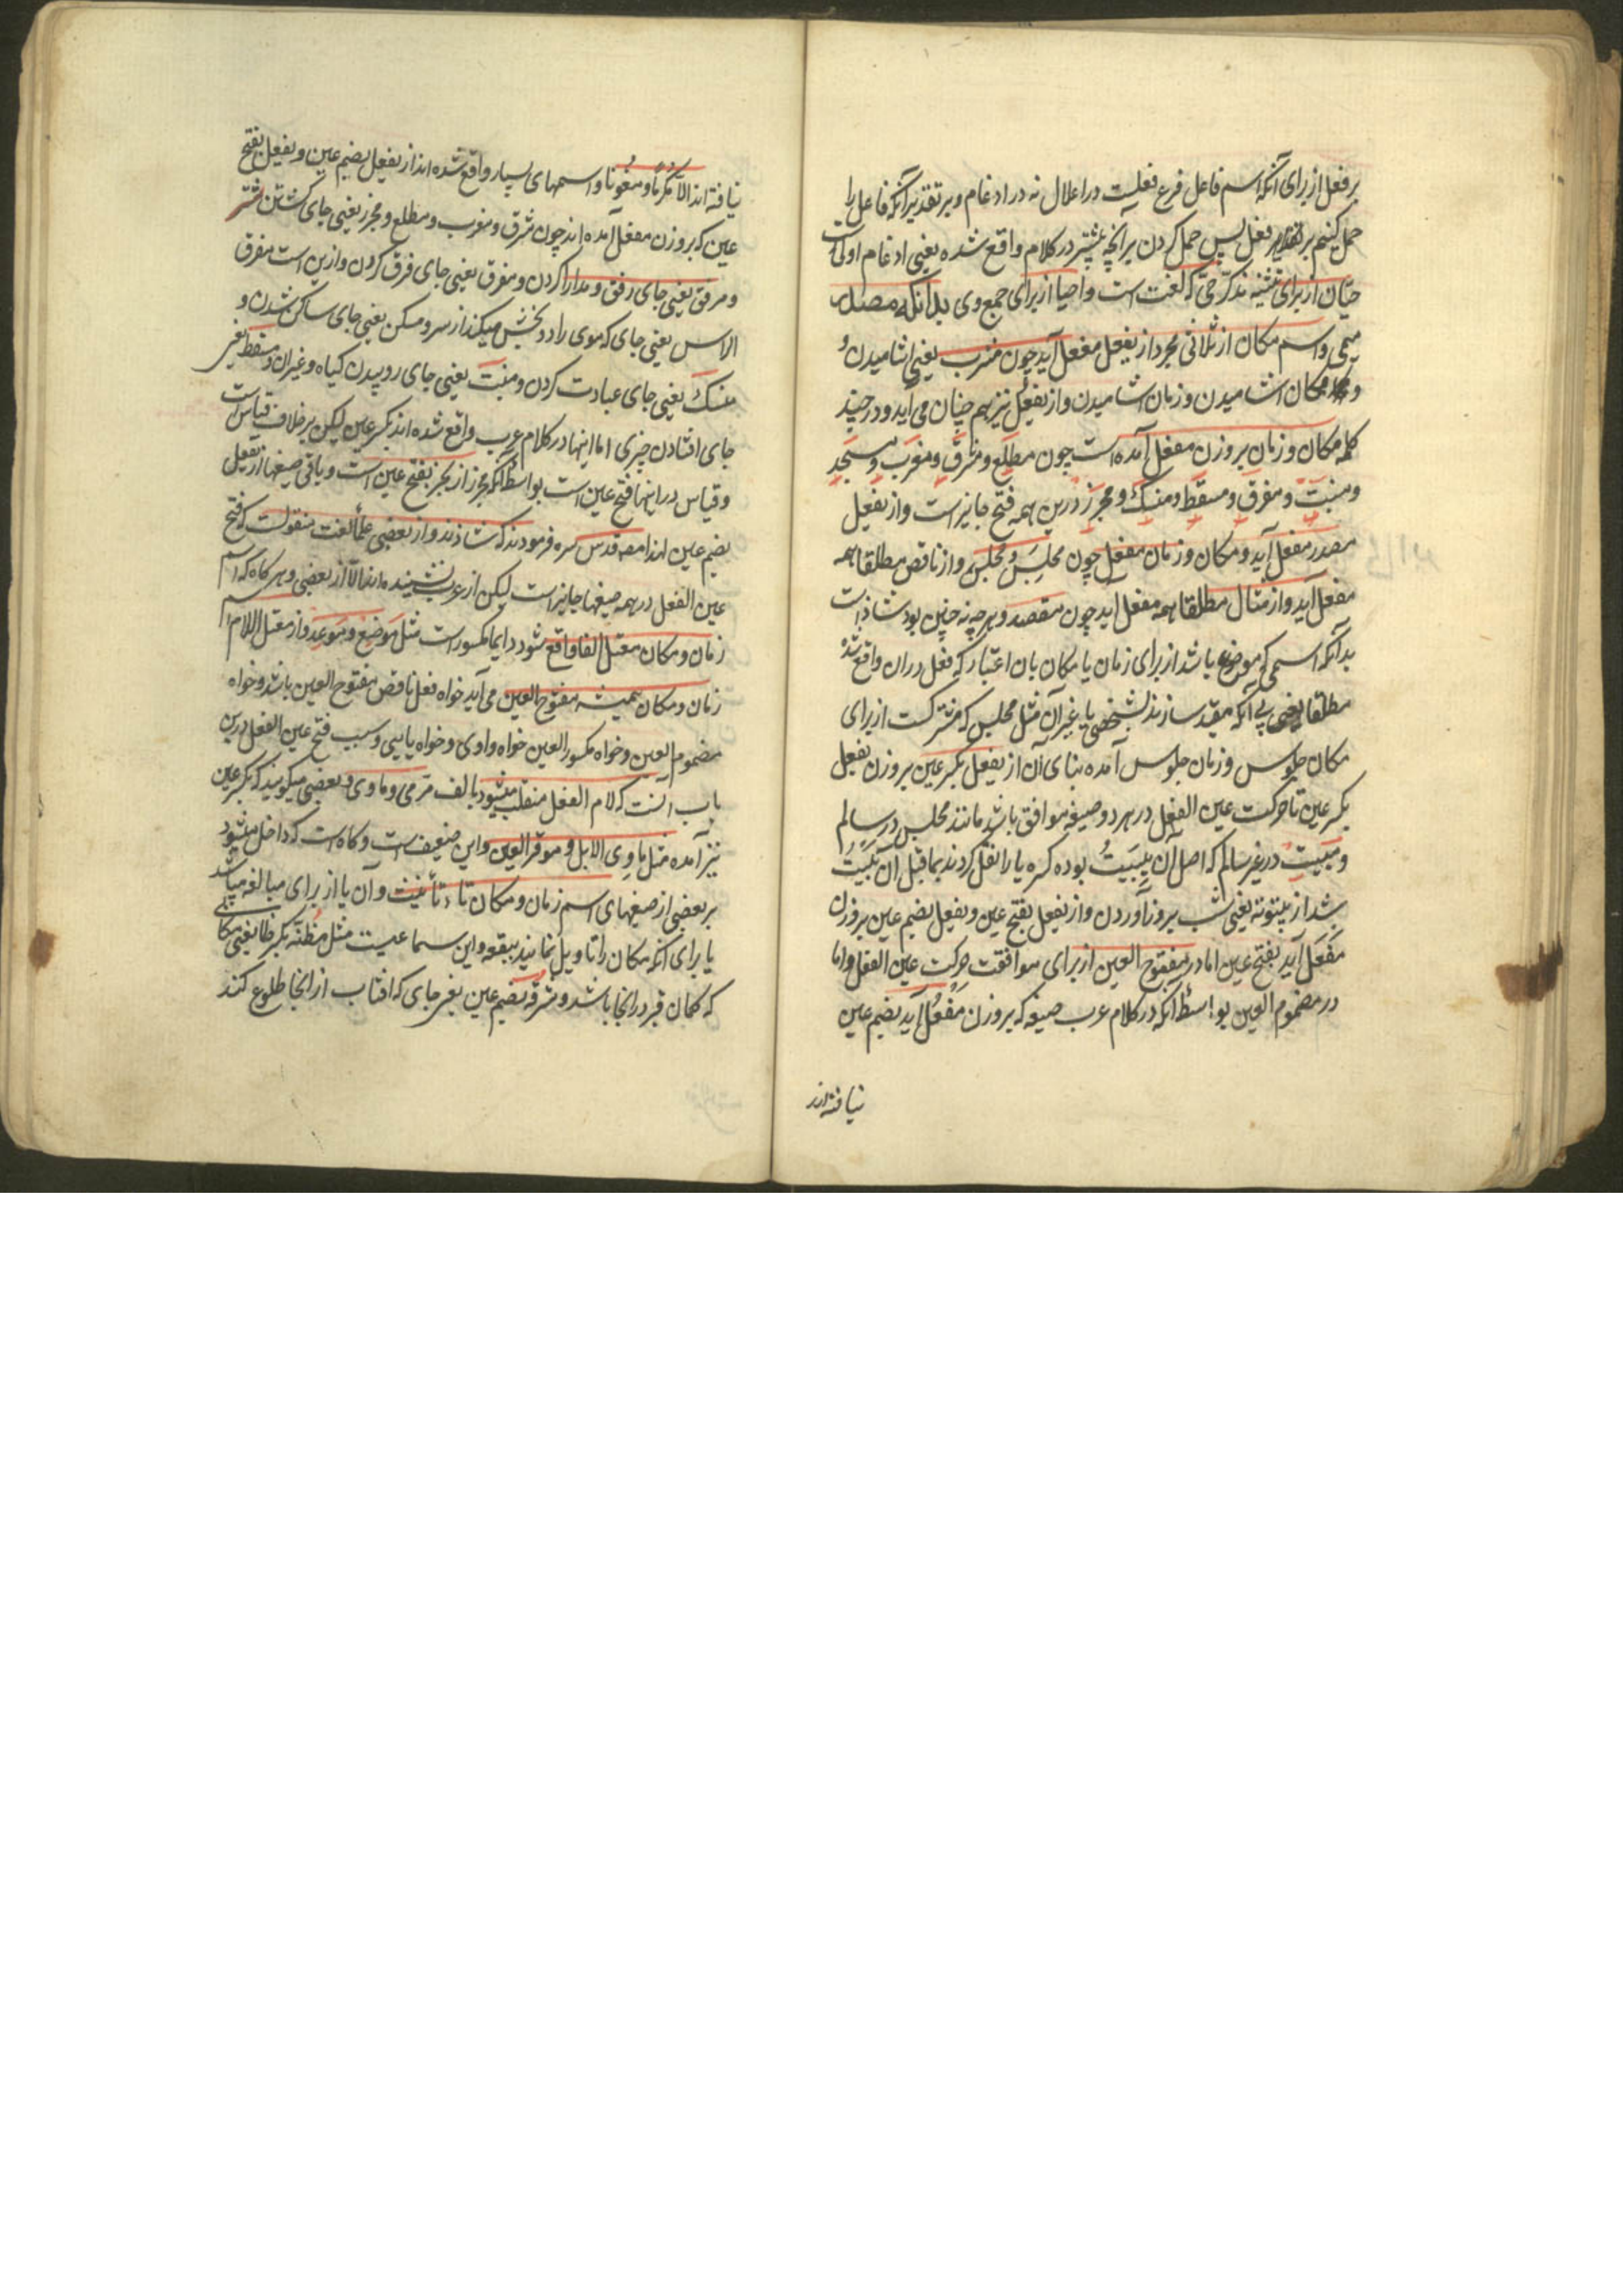 بر فعل از برای آنکه اسم فاعل فرع فعلیت در اعلال نه در ادغام و بر تقدیر آنکه فاعل را
حمل کنیم بر فعل پس حمل کردن بر آنچه بیشتر در کلام واقع شده یعنی ادغام اولی است
حیّان از برای تثنیه مذکر حیّ که لغت است و احیا از برای جمع وی بدانکه مصدر
میمی و اسم مکان از ثلاثی مجرد از یفعل مفعل آید چون مشرب یعنی اشامیدن و
و مکان اشامیدن و زمان اشامیدن و از یفعل نیز هم چنان می آید و در چند
کلمه مکان و زمان بر وزن مفعل آمده است چون مطلع و مشرق و مغرب و مسجد
و منبت و مفرق و مسقط و منسک و مجزر درین همه فتح جایز است و از یفعل
مصدر مفعل آید و مکان و زمان مفعل چون مجلس و مجلس و از ناقص مطلقا همه
مفعل آید و از مثال مطلقا همه مفعل اید چون مقصد و هر چه نه چنین بود شاذ است
بدانکه اسمی که موضوع باشد از برای زمان یا مکان بان اعتبار که فعل در ان واقع شد
مطلقا یعنی بی آنکه مقید سازند بشخصی یا غیر آن مثل مجلس که مشترکست از برای
مکان جلوس و زمان جلوس آمده بنای آن از یفعل بکسر عین بر وزن یفعل
بکسر عین تا حرکت عین الفعل در هر دو صیغه موافق باشد مانند مجلس در سالم
و مبیت در غیر سالم که اصل آن یبیت بوده کسره یا را نقل کردند بما قبل آن یبیت
شد از بیتوته یعنی شب بروز آوردن و از یفعل بفتح عین و یفعل بضم عین بر وزن
مفعل آید بفتح عین اما در مفتوح العین از برای موافقت حرکت عین الفعل و اما
در مضموم العین بواسطه آنکه در کلام عرب صیغه که بر وزن مفعل آید بضم عین
نیافته اند
نیافته اند الا مکرما و معونا و اسمهای بسیار واقع شده اند از یفعل بضم عین و یفعل بفتح
عین که بر وزن مفعل آمده اند چون مشرق و مغرب و مطلع و مجزر یعنی جای کشتن شتر
و مرفق یعنی جای رفق و مدارا کردن و مفرق یعنی جای فرق کردن و ازین است مفرق
الراس یعنی جای که موی را دو بخش میکند از سر و مسکن یعنی جای ساکن شدن و
منسک یعنی جای عبادت کردن و منبت یعنی جای روییدن کیاه و غیر ان و مسقط یعنی
جای افتادن چیزی اما اینها در کلام عرب واقع شده اند بکسر عین لیکن بر خلاف قیاس است
و قیاس در اینها فتح عین است بواسطه آنکه مجزر از یجزر بفتح عین است و باقی صیغها از یفعل
بضم عین لهذا مص قدس سره فرمودند که شاذند و از بعضی علما لغت منقولست که فتح
عین الفعل در همه صیغها جایز است لیکن از عرب نشنیده اند الا از بعضی و هر کاه که اسم
زمان و مکان معتل الفا واقع شود دایما مکسور است مثل موضع و موعد و از معتل اللام اسم
زمان و مکان همیشه مفتوح العین می آید خواه فعل ناقص مفتوح العین باشد و خواه
مضموم العین و خواه مکسور العین خواه واوی و خواه یایی و سبب فتح عین الفعل درین
باب آنست که لام الفعل منقلب میشود بالف مرمی و ماوی و بعضی میکویند که بکسر عین
نیز آمده مثل ماوی الابل و موقر العین و این ضعیف است و کاه است که داخل میشود
بر بعضی از صیغهای اسم زمان و مکان تاء تأنیث و آن یا از برای مبالغه میباشد
یا برای آنکه مکان را تاویل نمایند ببقعه و این سماعیست مثل مظنّه بکسر ظا یعنی مکانی
که کمان در انجا باشد و مشرقه بضم عین یعنی جای که افتاب از انجا طلوع کند